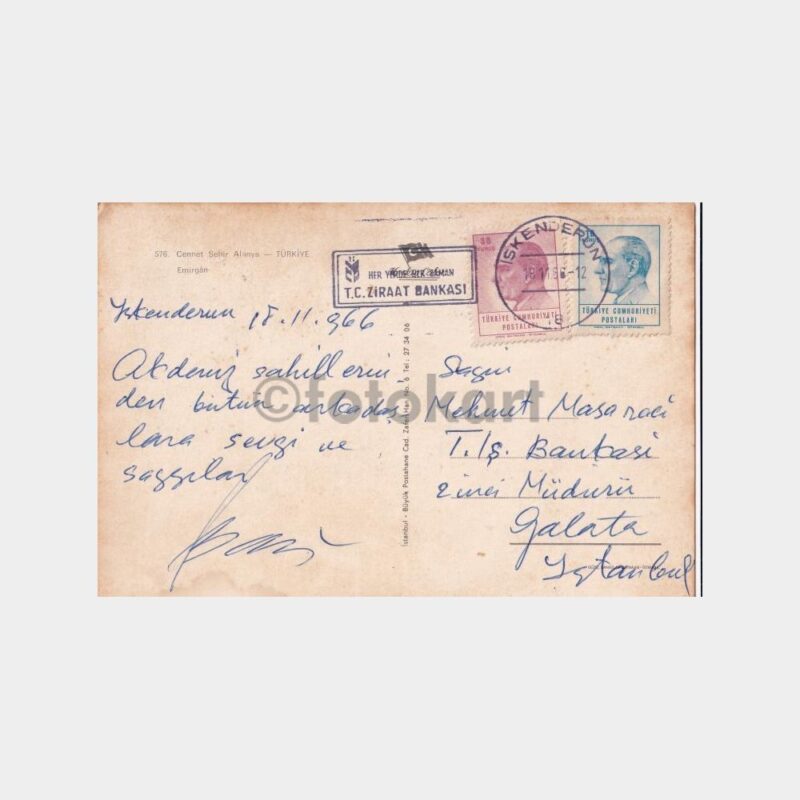 576. Cennet Şehir Alanya — TÜRKİYE
Emirgân
HER YERDE HER ZAMAN
T.C. ZİRAAT BANKASI
30
İSKENDERUN
18.11.66-12
TÜRKİYE CUMHURİYETİ
POSTALARI
TÜRKİYE CUMHURİYETİ
POSTALARI
İskenderun 18.11.966
Akdeniz sahillerin
den bütün arkadaş
lara sevgi ve
saygılar
İstanbul - Büyük Postahane Cad. No. 6 Tel: 27 34 06
Sayın
Mehmet
T. İş. Bankası
2inci Müdürü
Galata
İstanbul
©fotokart